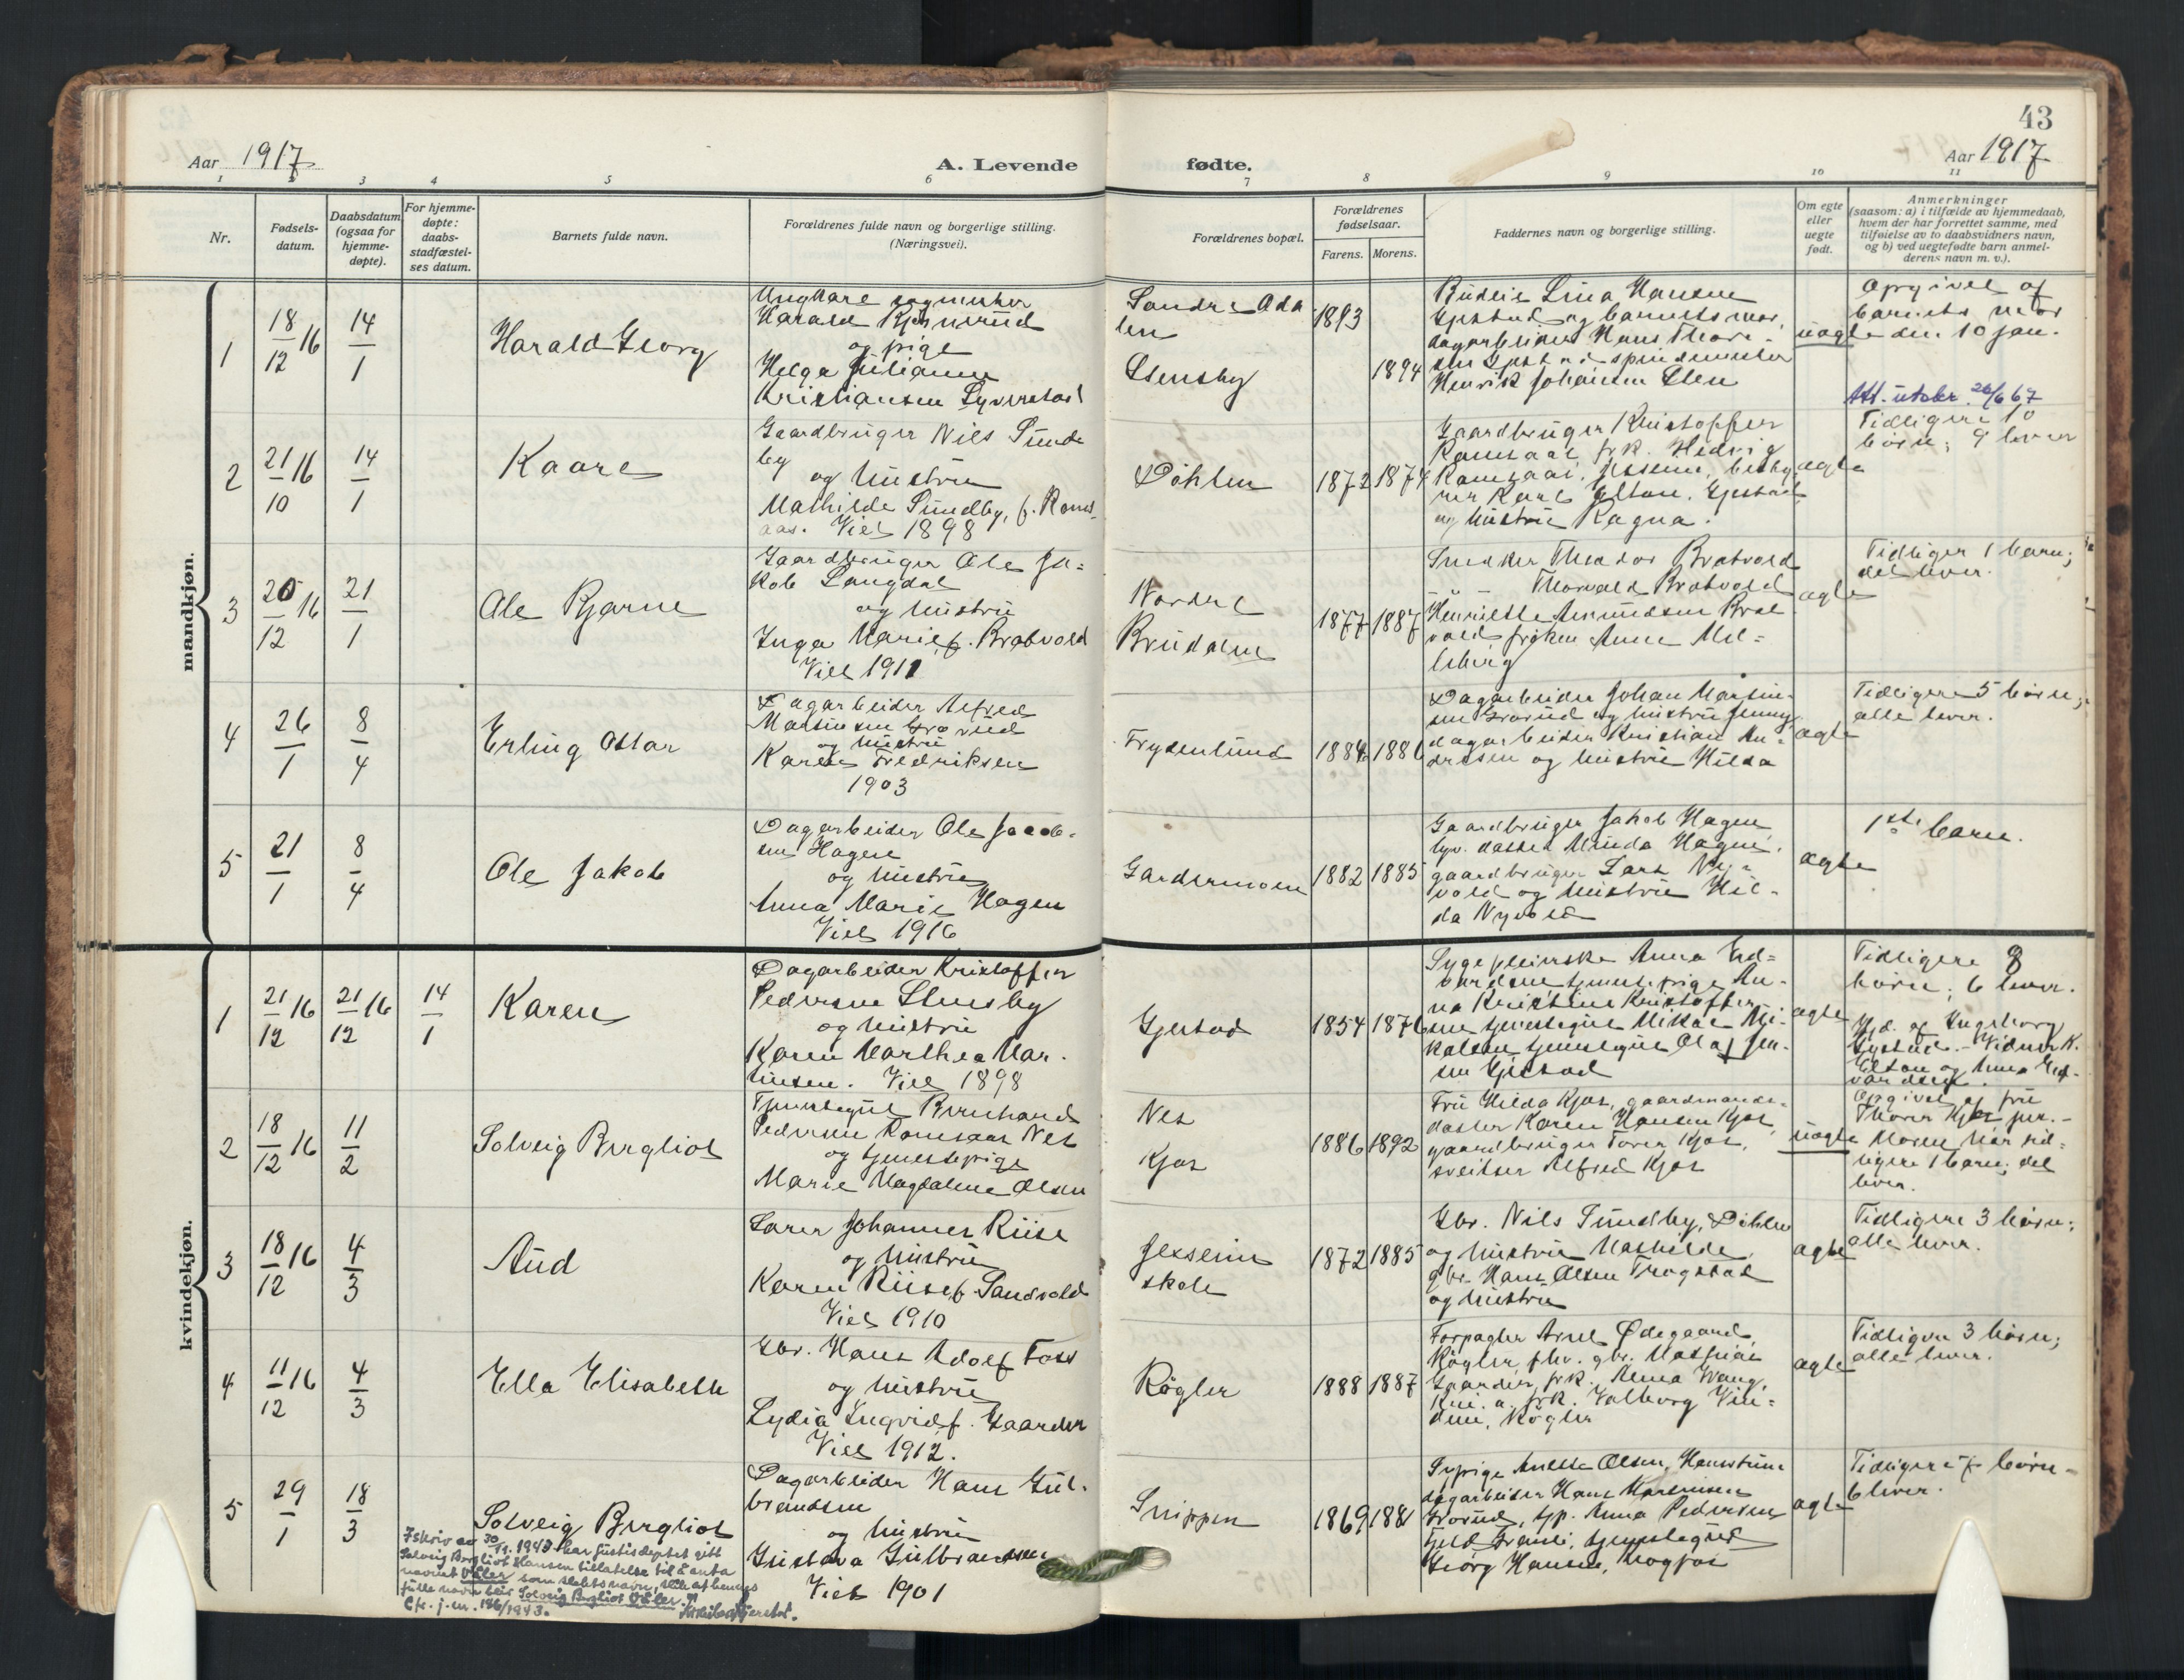 43
Aar 1917
A. Levende
fødte.
Aar 1917
1
2
3
4
5
6
7
8
9
10
11
Nr.
Fødsels-
datum.
Daabsdatum
(ogsaa for
hjemme-
døpte).
For hjemme-
døpte:
daabs-
stadfæstel-
ses datum.
Barnets fulde navn.
Forældrenes fulde navn og borgerlige stilling.
(Næringsvei).
Forældrenes bopæl.
Forældrenes
fødselsaar.
Farens.
Morens.
Faddernes navn og borgerlige stilling.
Om egte
eller
uegte
født.
Anmerkninger
(saasom: a) i tilfælde av hjemmedaab,
hvem der har forrettet samme, med
tilføielse av to daabsvidners navn,
og b) ved uegtefødte barn anmel-
derens navn m. v.).
mandkjøn.
1
18/12 16
14/1
Harald Georg
Ungkare
Harald
og pige
Helga Julianne
Kristiansen
Søndre
Stensby
1893
1894
Lina Hansen
og barnets mor,
dagarbeider Hans
Henrik Johansen Sten
uægte
Opgivet af
barnets mor
den 10 jan.
Att. utstedt 26/6 67
2
21/10 16
14/1
Kaare
Gaardbruger Nils Sund-
by
og hustru
Mathilde Sundby, f. Roms-
aas. Viet 1898
Døhlen
1872
1874
Gaardbruger Kristoffer
Romsaas frk. Hedvig
Romsaas, Jessem,
og hustru Ragna.
ægte
Tidligere 10
børn; 9 lever
3
20/12 16
21/1
Ole Bjarne
Gaardbruger Ole Ja-
kob Langdal
og hustru
Inga Marie f. Bratvold
Viet 1911
Nordre
Brudalen
1877
1887
Snedker Theodor Bratvold
" " Thorvald Bratvold
Henriette Amundsen Brat
vold frøken Anne Mel-
leberg
ægte
Tidligere 1 barn;
det lever.
4
26/1
8/4
Erling Ottar
Dagarbeider Alfred
Martinsen Grorud
og hustru
Karen Fredriksen
1903
Frydenlund
1884
1886
Dagarbeider Johan Martin-
sen Grorud og hustru Jenny
dagarbeider Kristian An-
dresen og hustru Hilda
ægte
Tidligere 5 børn;
alle lever.
5
21/1
8/4
Ole Jakob
Dagarbeider Ole Jacob-
sen Hagen
og hustru
Anna Marie Hagen
Viet 1916
Gardermoen
1882
1885
Gaardbruger Jakob Hagen
datter Hagen,
gaardbruger Lars Ny-
vold og hustru Hil-
da Nyvold
ægte
1ste barn.
kvindekjøn.
1
21/12 16
21/12 16
14/1
Karen
Dagarbeider Kristoffer
Pedersen Stensby
og hustru
Karen Marthea Mar-
tinsen. Viet 1898
Gjestad
1854
1876
Sygepleierske Anna Ed-
vardsen tjenestepige An-
na Kristine Kristoffer-
sen tjenestegut Mikal Mi-
kalsen tjenestegut Olaf Jen-
sen Gjestad
ægte
Tidligere 8
børn; 6 lever.
Hjd. af Ingeborg
Gjestad. - Vidner K.
Elton og Anna Ed-
vardsen.
2
18/12 16
11/2
Solveig Bergliot
Tjenestegut Bernhard
Pedersen Romsaas Nes
og tjenestepige
Marie Magdalene Olsen
Nes
Kjos
1886
1892
Fru Hilda Kjos, gaardmands-
datter Karen Hansen Kjos
gaardbruger Tover Kjos,
sveitser Alfred Kjos
uægte
Opgivet af fru
Thorer Kjos jur. -
Moren har tid-
ligere 1 barn; det
lever.
3
18/12 16
4/3
Aud
Lærer Johannes Riise
og hustru
Karen Riise f. Sandvold
Viet 1910
Jessem
skole
1872
1885
Gbr. Nils Sundby, Døhlen
og hustru Mathilde,
gbr. Hans Olsen Trøgstad
og hustru
ægte
Tidligere 3 børn;
alle lever.
4
11/12 16
4/3
Ella Elisabeth
Gbr. Hans Adolf Foss
og hustru
Lydia Ingrid f. Gaarder
Viet 1912.
Røgler
1888
1887
Forpagter Arnt Ødegaard,
Røgler, fhv. gbr. Mathias
Gaarder, frk. Anna Wang,
frk. Valborg Vin-
dem, Røgler
ægte
Tidligere 3 børn;
alle lever.
5
29/1
18/3
Solveig Bergliot
Dagarbeider Hans Gul-
brandsen
og hustru
Gustava Gulbrandsen
Viet 1901
Snippen
1869
1881
Sypige Anette Olsen,
dagarbeider Hans Martinsen
Grorud, tjp. Anna Pedersen
tjenestegut
Georg Hansen, Mogfos
ægte
Tidligere 7 børn -
6 lever.
I skriv av 30/11. 1943 har Justisdeptet gitt
Solveig Bergliot Hansen tillatelse til å anta
navnet Våler som slektsnavn, slik at hennes
fulle navn blir Solveig Bergliot Våler.
Cfr. j. nr. 186/1943.